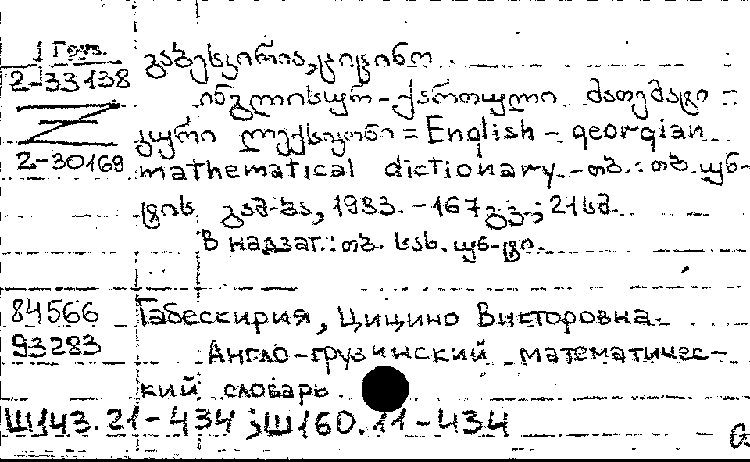 1 Груз.
2-33138
2-30169
გაბესკირია, ციცინო
ინგლისურ-ქართული მათემატი-
კური ლექსიკონი = English-georgian
mathematical dictionary.-თბ.: თბ. უნ-
ტის გამ-ბა, 1983.-167გვ.; 21სმ.
В надзаг.: თბ. სახ. უნ-ტი.
84566
93283
Габескирия, Цицино Викторовна.
Англо-грузинский математичес-
кий словарь
Ш143.21-434; Ш160.11-434